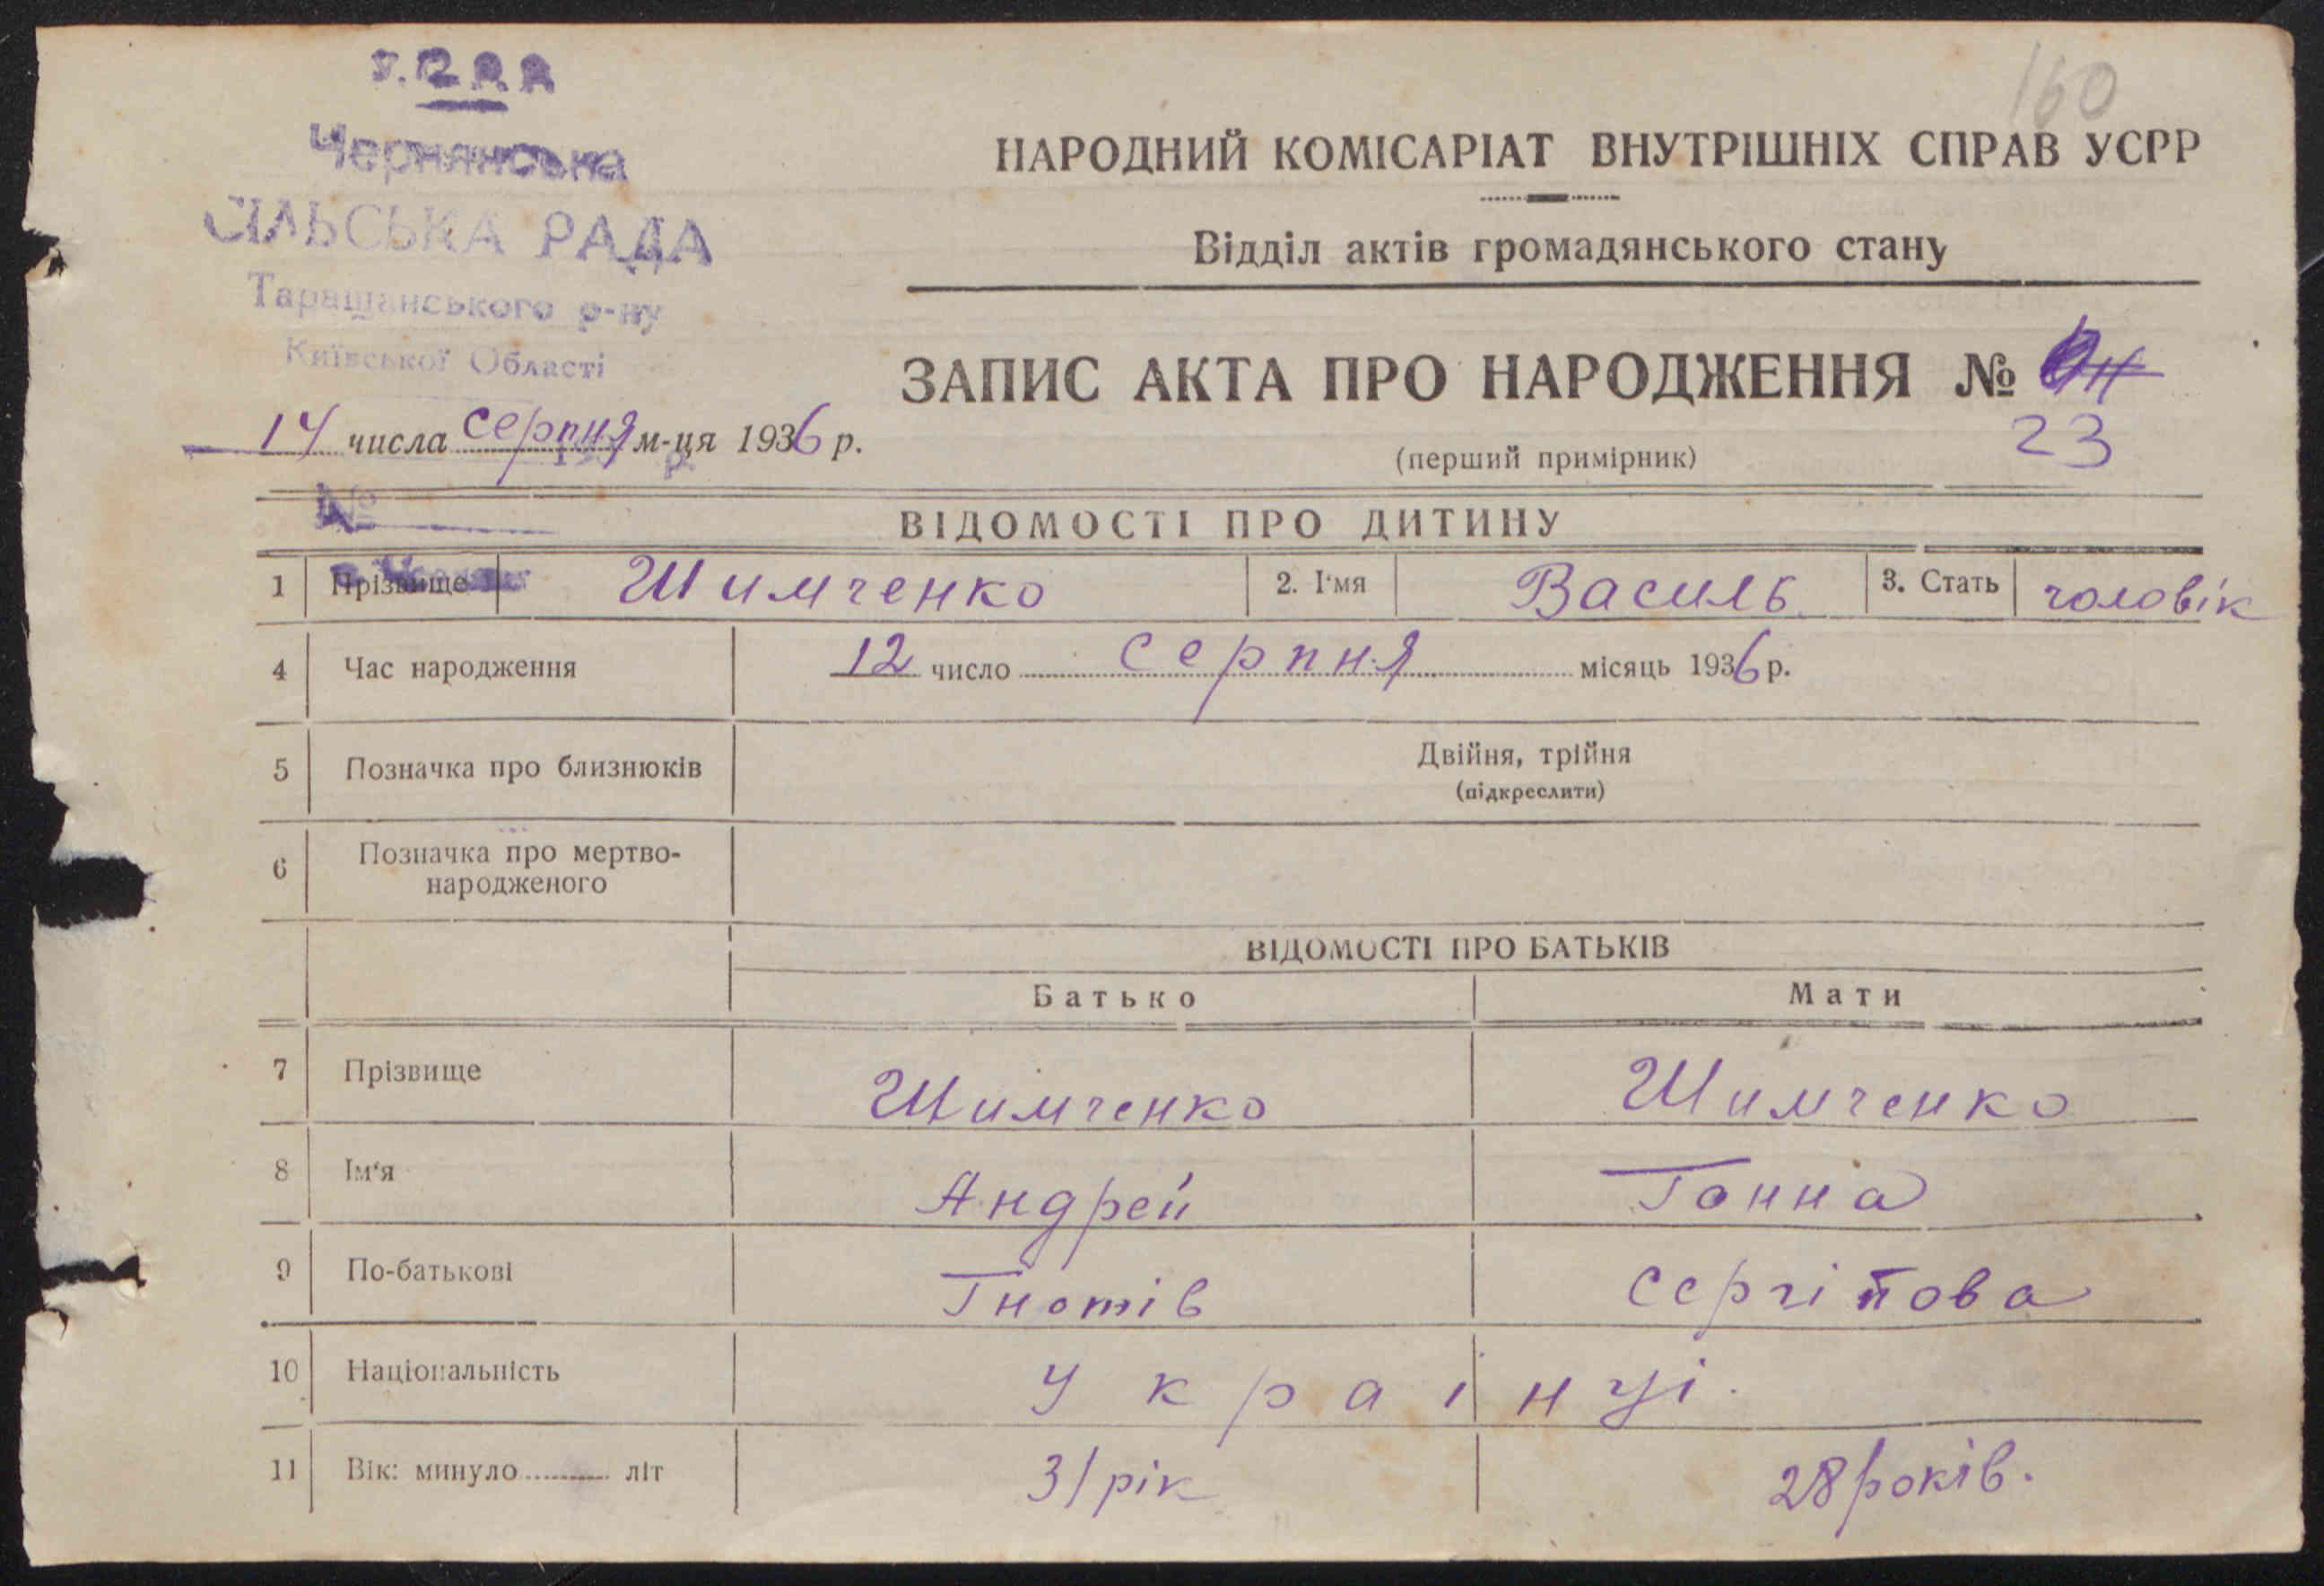 У.С.Р.Р.
160
Чернянська
СІЛЬСЬКА РАДА
Таращанського р-ну
Київської Області
14 числа серпня м-ця 1936 р.
№
НАРОДНИЙ КОМІСАРІАТ ВНУТРІШНІХ СПРАВ УСРР
Відділ актів громадянського стану
ЗАПИС АКТА ПРО НАРОДЖЕННЯ №
23
(перший примірник)
ВІДОМОСТІ ПРО ДИТИНУ
1 Прізвище Шимченко 2. І'мя Василь 3. Стать чоловік
4 Час народження 12 число серпня місяць 1936 р.
5 Позначка про близнюків Двійня, трійня
(підкреслити)
6 Позначка про мертво-
народженого
ВІДОМОСТІ ПРО БАТЬКІВ
Батько Мати
7 Прізвище Шимченко Шимченко
8 Ім'я Андрей Ганна
9 По-батькові Гнатів Сергійова
10 Національність Українці.
11 Вік: минуло ........ літ 31 рік 28 років.